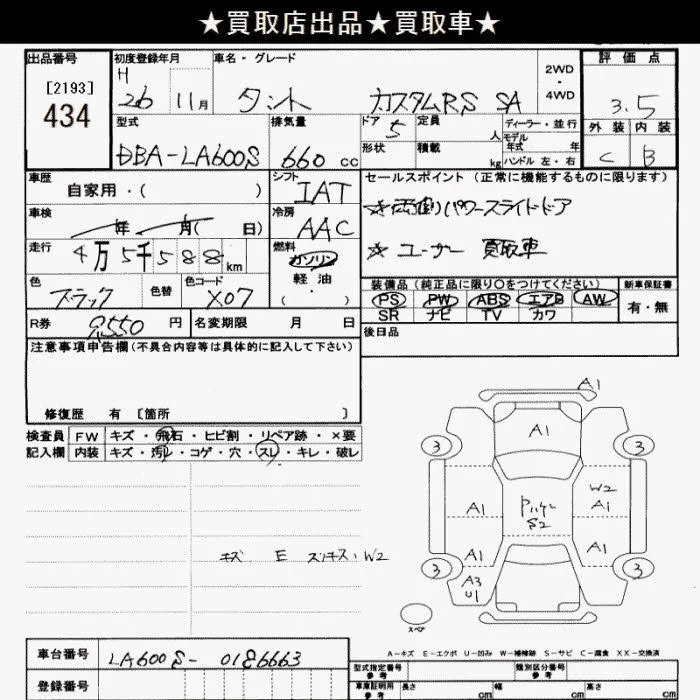 ★買取店出品★買取車★
出品番号
[2193]
434
初度登録年月
H
26 11月
車名・グレード
タント カスタムRS SA
2WD
・
4WD
評価点
3.5
外装 内装
C B
型式
DBA-LA600S
排気量
660 cc
ドア
5
定員
人
形状
積載
kg
ディーラー・並行
モデル
年式 年
ハンドル 左・右
車歴
自家用・( )
シフト
IAT
車検
年 月( 日)
冷房
AAC
走行
4万5千588km
燃料
ガソリン
軽油
( ・ )
色
ブラック
色替
色コード
X07
R券
8550 円
名変期限 月 日
セールスポイント(正常に機能するものに限ります)
☆両側パワースライドドア
☆ユーザー 買取車
装備品(純正品に限り○をつけてください)
PS PW ABS エアB AW
SR ナビ TV カワ
新車保証書
有・無
後日品
注意事項申告欄(不具合内容等は具体的に記入して下さい)
修復歴 有 [箇所 ]
検査員
記入欄
FW キズ・飛石・ヒビ割・リペア跡・×要
内装 キズ・汚レ・コゲ・穴・スレ・キレ・破レ
キズ E スリキズ・W2
A1
A1
3 3
W2
A1 A1
S2
A1 A1
3 3
A3
U1
スペア
A-キズ E-エクボ U-凹み W-補修跡 S-サビ C-腐食 XX-交換済
車台番号
LA600S-0186663
登録番号
型式指定番号
参考
類別区分番号
参考
車庫証明用
参考
長さ cm
幅 cm
高さ cm